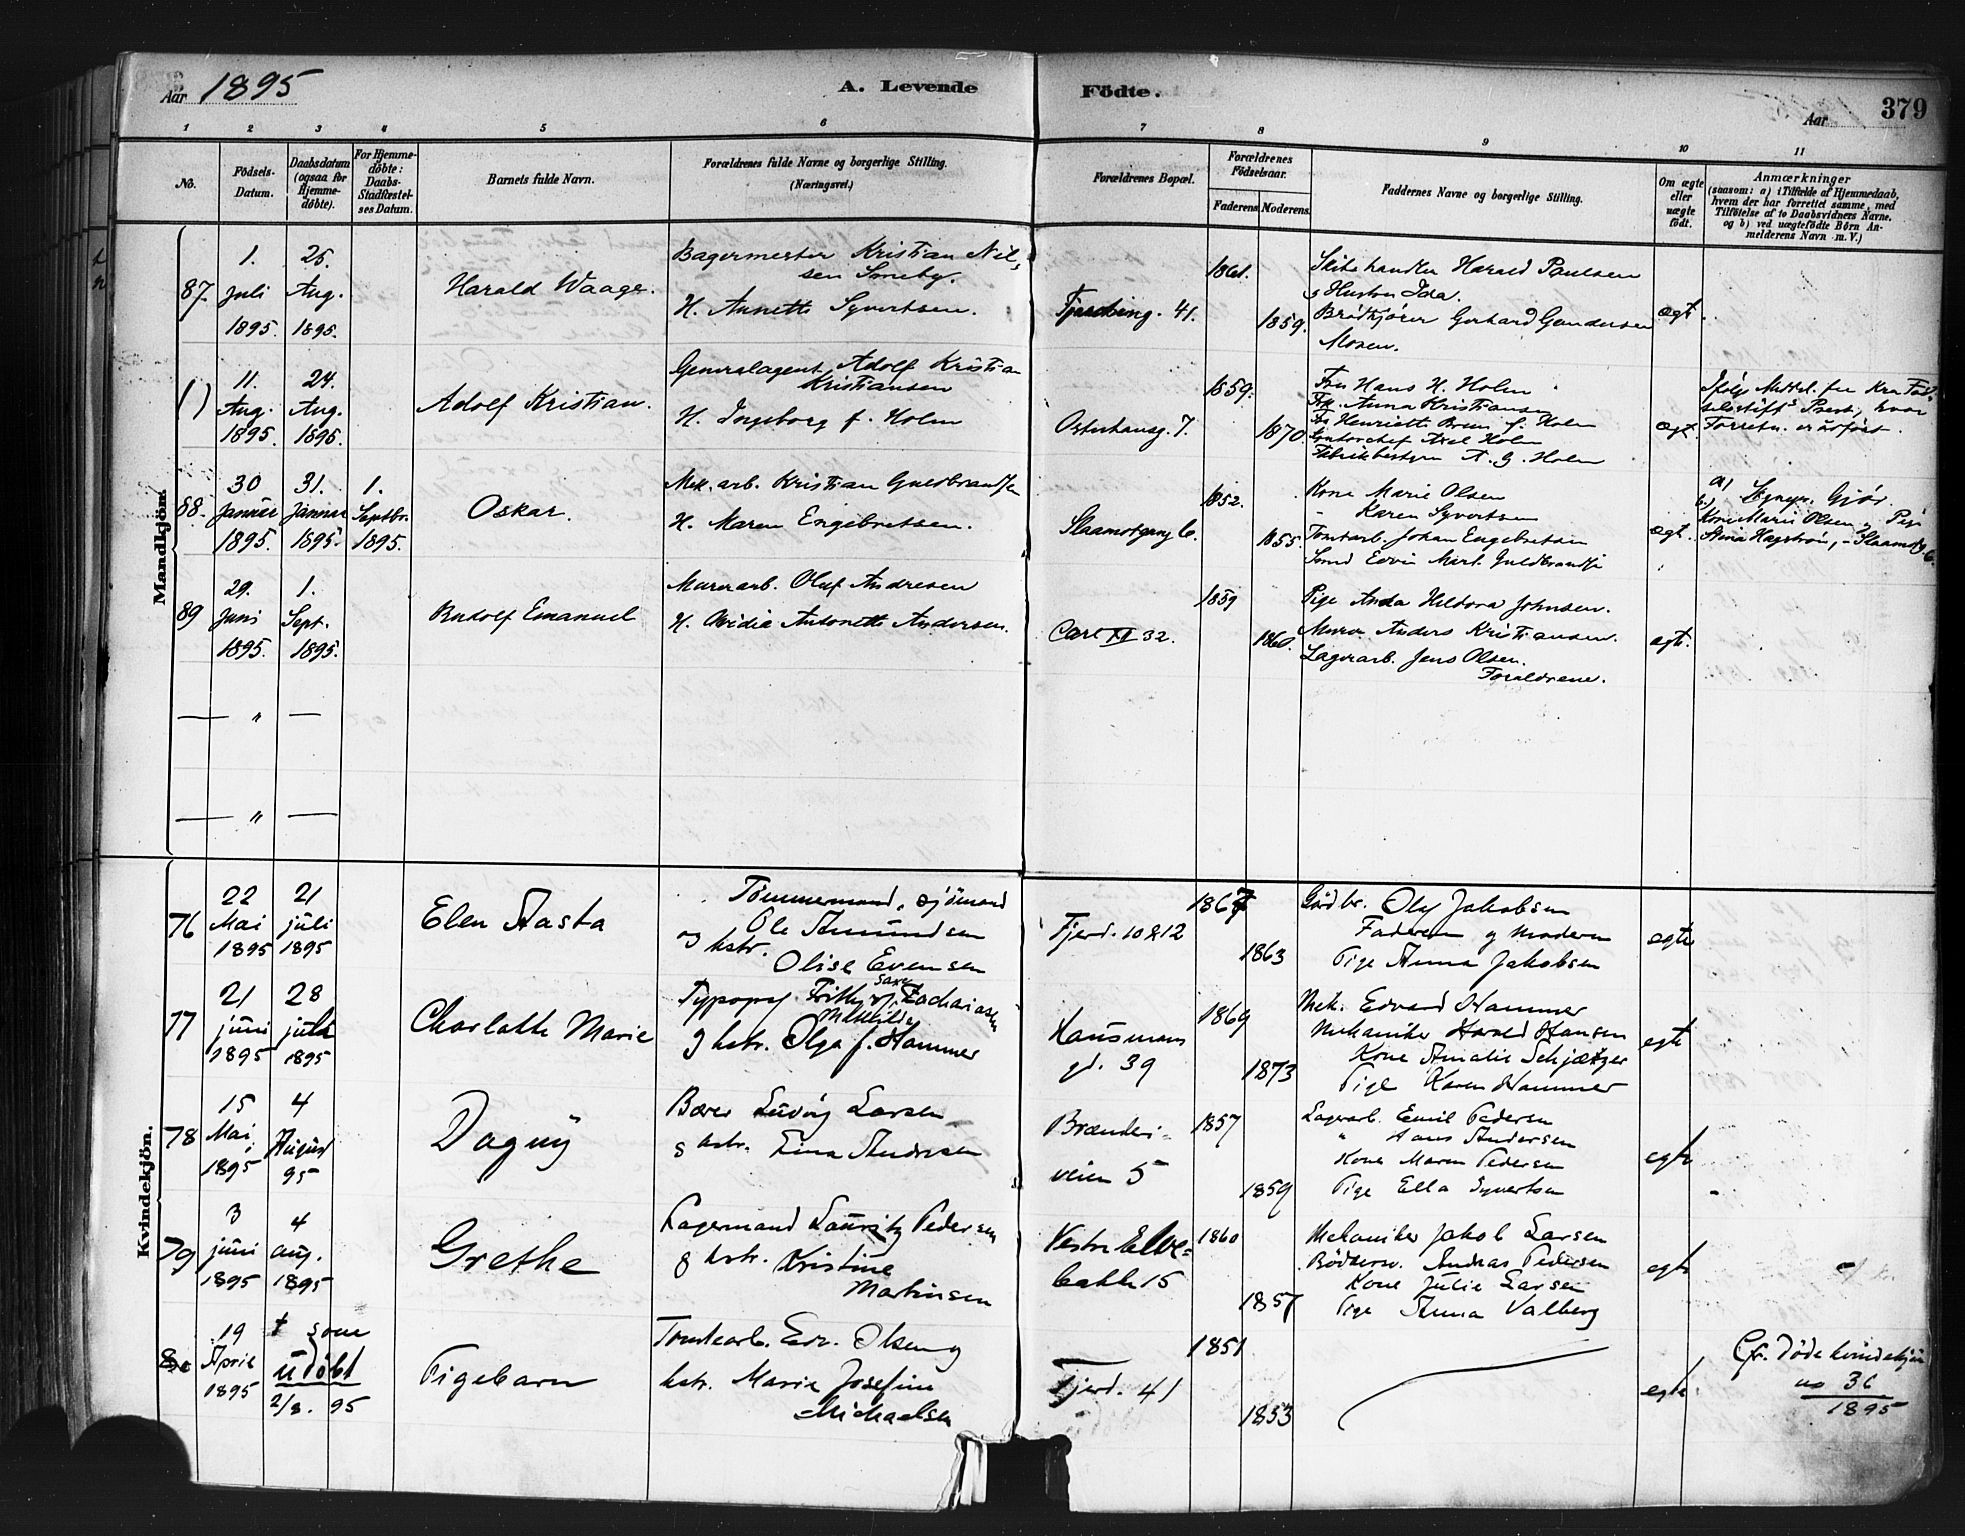 Aar 1895
A. Levende
Födte.
Aar
379
1 2 3 4 5 6 7 8 9 10 11
No.
Födsels-
Datum.
Daabsdatum
(ogsaa for
Hjemme-
döbte).
For Hjemme-
döbte:
Daabs-
Stadfæstel-
ses Datum.
Barnets fulde Navn.
Forældrenes fulde Navne og borgerlige Stilling.
(Næringsvei.)
Forældrenes Bopæl.
Forældrenes
Födselsaar.
Faderens. Moderens.
Faddernes Navne og borgerlige Stilling.
Om ægte
eller
uægte
födt.
Anmærkninger
(saasom: a) i Tilfælde af Hjemmedaab,
hvem der har forrettet samme, med
Tilföielse af to Daabsvidners Navne.
og b) ved uægtefödte Börn An-
melderens Navn m. V.)
Mandkjön.
87.
1.
Juli
1895.
25.
Aug.
1895.
Harald Waage.
Bagermester Kristian Nil-
sen Smeby.
H. Annette Syvertsen.
Fjerding. 41.
1861.
1859.
handler Harald Paulsen
& Hustru Ida.
Brödkjörer Gerhard Gundersen
Mosen.
ægt.
( )
11.
Aug.
1895.
24.
Aug.
1895.
Adolf Kristian.
Generalagent Adolf Kristian
Kristiansen
H. Ingeborg f. Holm
Osterhausg. 7.
1859.
1870.
Fru Hans H. Holm
Frk. Anna Kristiansen
Fru Henriette Brun f. Holm
Kontorchef Axel Holm
Fabrikbestyrer A. G. Holm
ægt.
Ifölge Meddel. fra Kra Föd-
selsstift's Prest, hvor
Forretn. er udfört.
88.
30
Januar
1895.
31.
Januar
1895.
1.
Septbr.
1895.
Oskar.
Mek. arb. Kristian Guldbrandsen
H. Maren Engebretsen.
Slaamotgang 6.
1852.
1855.
Kone Marie Olsen
" Karen Syvertsen
Tomtarb. Johan Engebretsen
Smed Edvin Mart. Guldbrandsen
ægt.
a) Gjör.
b) Kone Marie Olsen, Pige
Stina Hagström, - Slaamotg. 6.
89
29.
Juni
1895.
1.
Sept.
1895.
Rudolf Emanuel
Murerarb. Oluf Andresen
H. Ovidia Antonette Andersen.
Carl XI 32.
1859
1860.
Pige Anda Heldora Johnsen.
Murer Anders Kristiansen.
Lagerarb. Jens Olsen.
Forældrene.
ægt.
— " —
— " —
Kvindekjön.
76
22
Mai
1895
21
juli
1895
Elen Aasta
Tömmermand, sjömand
Ole Amundsen
og hstr.
Olise Evensen
Fjerd. 10 & 12
1867
1863
Gårdbr. Oluf Jakobsen
Faderen og Moderen
Pige Anna Jakobsen
egte
77
21
juni
1895
28
juli
1895
Charlotte Marie
Typograf Fritz Zachariasen
Mathilda
g hstr. Olga f. Hammer
Hausmans
gd. 39
1869
1873
Mek. Edvard Hammer
Mekaniker Harald Hansen
Kone Amalie Schjætger
Pige Karen Hammer
egte
78
15
Mai
1895
4
August
95
Dagny
Bærer Ludvig Larsen
g hstr. Lina Andresen
Brænderi-
veien 5
1857
1859
Lagerarb. Emil Pedersen
" Hans Andersen
Kone Maren Pedersen
Pige Ella Syvertsen
egte
79
3
juni
1895
4
aug.
1895
Grethe
Lagermand Lauritz Pedersen
g hstr. Kristine
Martinsen
Vestre Elve-
bakke 15
1860
1857
Mekaniker Jakob Larsen
Bödkersv. Andreas Pedersen
Kone Julie Larsen
Pige Anna Valberg
egte
80
19
April
1895
† som
udöbt
2/8. 95
Pigebarn
Tomtearb. Edv. Olsen og
hstr. Marie Josefine
Michaelsen
Fjerd. 41
1851
1853
egte
Cfr. Döde kvindekjön
no 36
1895